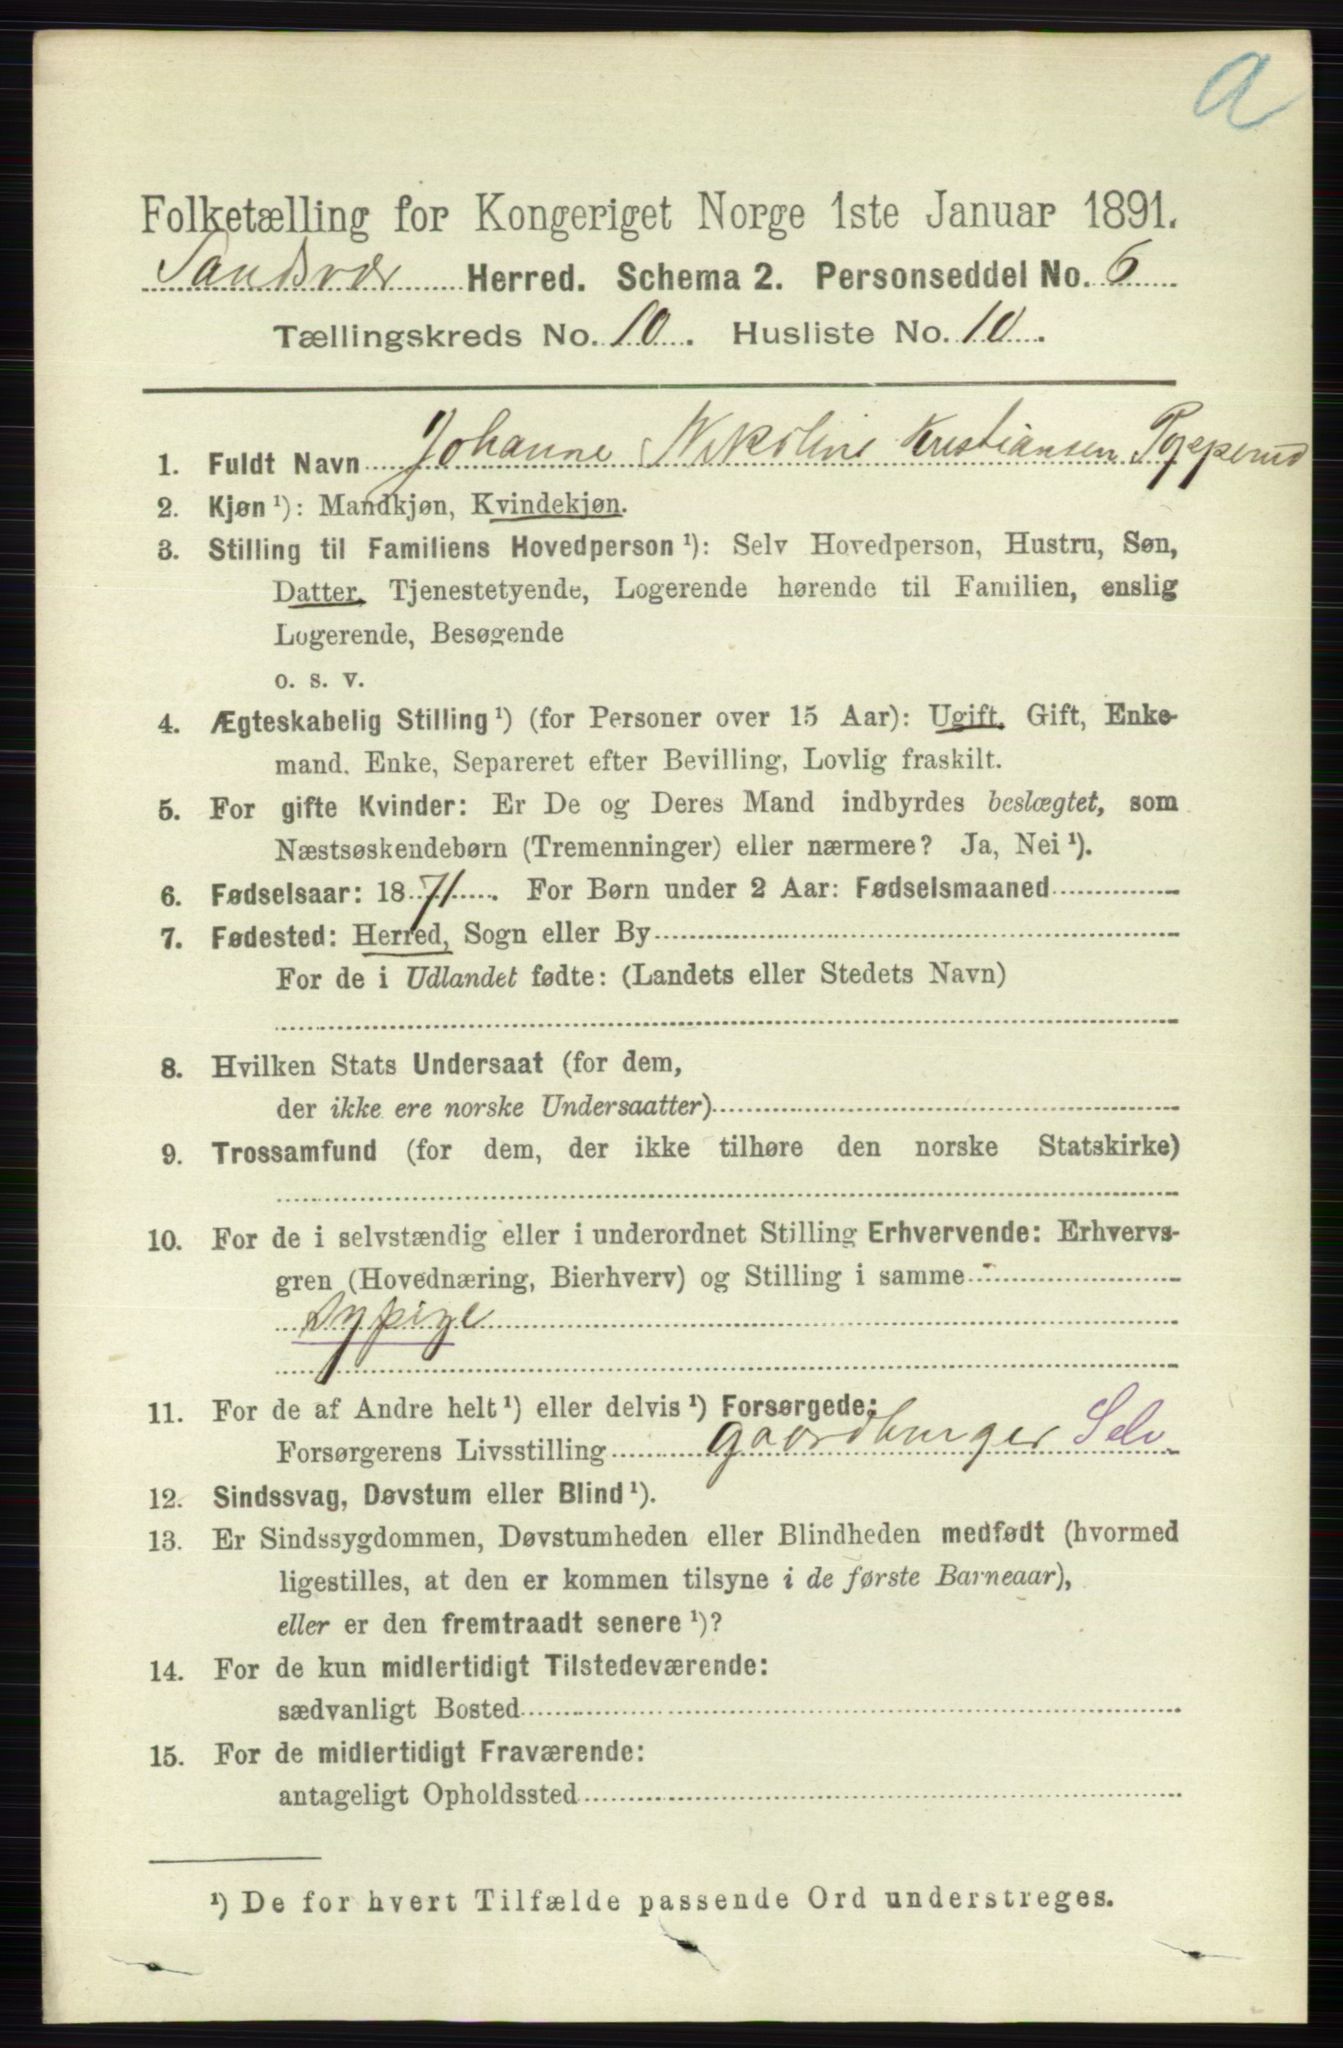 a
Folketælling for Kongeriget Norge 1ste Januar 1891.
Sandsvær Herred. Schema 2. Personseddel No. 6
Tællingskreds No. 10. Husliste No. 10.
1. Fuldt Navn Johanne Nikoline Kristiansen
2. Kjøn ¹): Mandkjøn, Kvindekjøn.
3. Stilling til Familiens Hovedperson ¹): Selv Hovedperson, Hustru, Søn,
Datter, Tjenestetyende, Logerende hørende til Familien, enslig
Logerende, Besøgende
o. s. v.
4. Ægteskabelig Stilling ¹) (for Personer over 15 Aar): Ugift, Gift, Enke-
mand, Enke, Separeret efter Bevilling, Lovlig fraskilt.
5. For gifte Kvinder: Er De og Deres Mand indbyrdes beslægtet, som
Næstsøskendebørn (Tremenninger) eller nærmere? Ja, Nei ¹).
6. Fødselsaar: 1871. For Børn under 2 Aar: Fødselsmaaned
7. Fødested: Herred, Sogn eller By
For de i Udlandet fødte: (Landets eller Stedets Navn)
8. Hvilken Stats Undersaat (for dem,
der ikke ere norske Undersaatter)
9. Trossamfund (for dem, der ikke tilhøre den norske Statskirke)
10. For de i selvstændig eller i underordnet Stilling Erhvervende: Erhvervs-
gren (Hovednæring, Bierhverv) og Stilling i samme
Sypige
11. For de af Andre helt ¹) eller delvis ¹) Forsørgede:
Forsørgerens Livsstilling gaardbruger Selv
12. Sindssvag, Døvstum eller Blind ¹).
13. Er Sindssygdommen, Døvstumheden eller Blindheden medfødt (hvormed
ligestilles, at den er kommen tilsyne i de første Barneaar),
eller er den fremtraadt senere ¹)?
14. For de kun midlertidigt Tilstedeværende:
sædvanligt Bosted
15. For de midlertidigt Fraværende:
antageligt Opholdssted
¹) De for hvert Tilfælde passende Ord understreges.